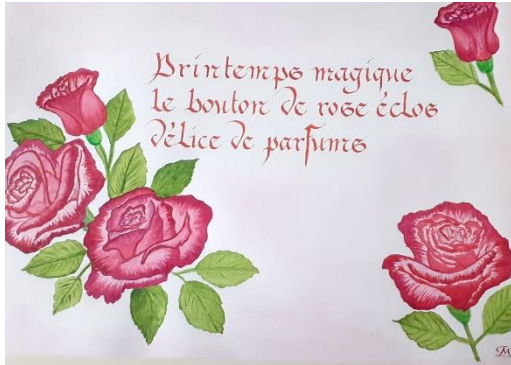 Printemps magique
le bouton de rose éclos
délice de parfums